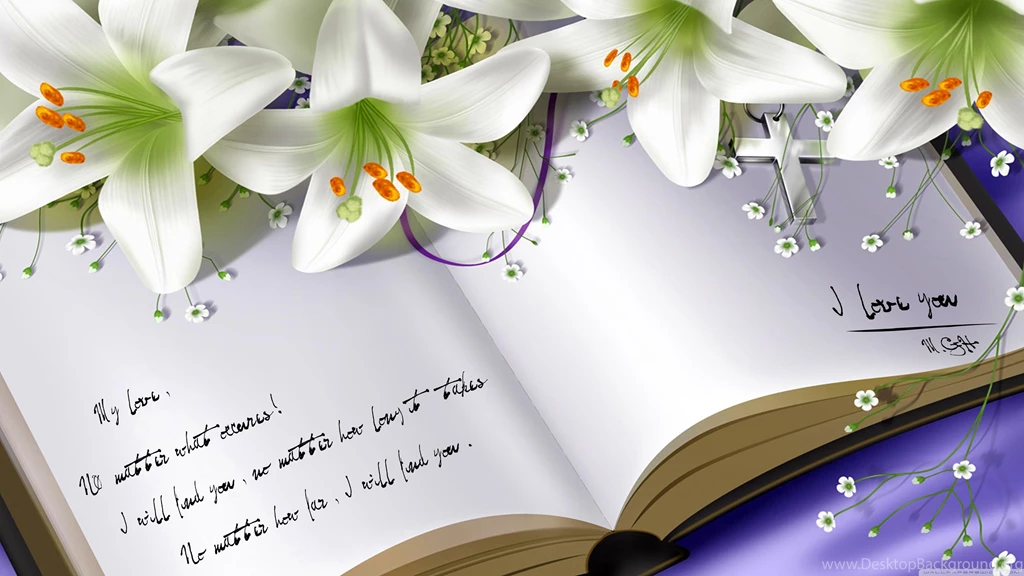 My love,
No matter what occures!
I will find you, no matter how long it takes
No matter how far, I will find you.
I love you
M. GH
www.DesktopBackground.org